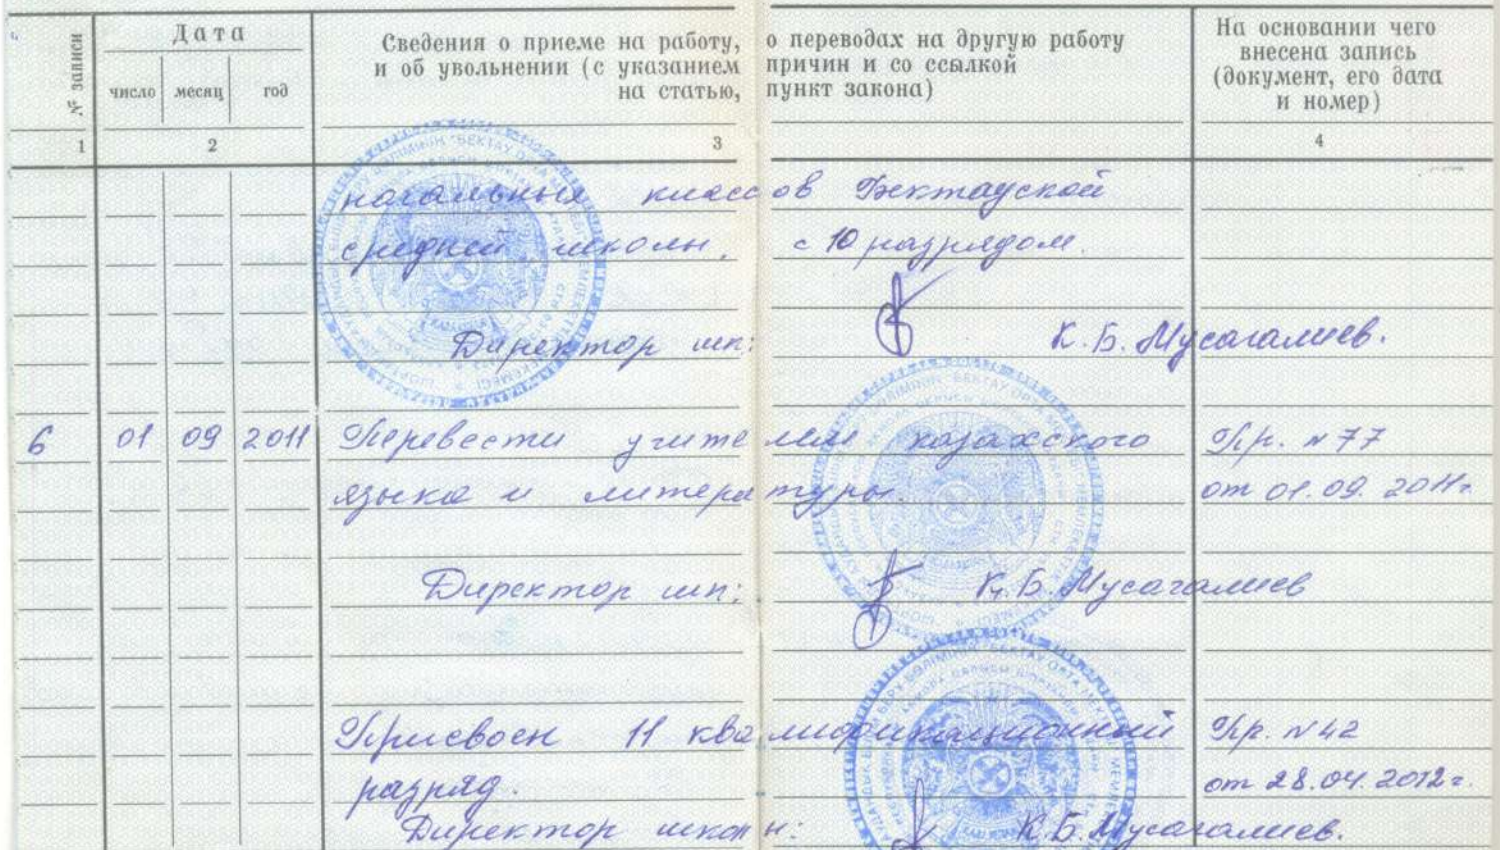 № записи
Дата
Сведения о приеме на работу, о переводах на другую работу
и об увольнении (с указанием причин и со ссылкой
на статью, пункт закона)
На основании чего
внесена запись
(документ, его дата
и номер)
число месяц год
1 2 3 4
начальных классов Бектауской
средней школы, с 10 разрядом.
Директор шк: К.Б. Мусагалиев.
6 01 09 2011 Перевести учителем казахского Пр. № 77
языка и литературы. от 01.09.2011г.
Директор шк: К.Б. Мусагалиев
Присвоен 11 квалификационный Пр. №42
разряд. от 28.04.2012г.
Директор школы: К.Б. Мусагалиев.